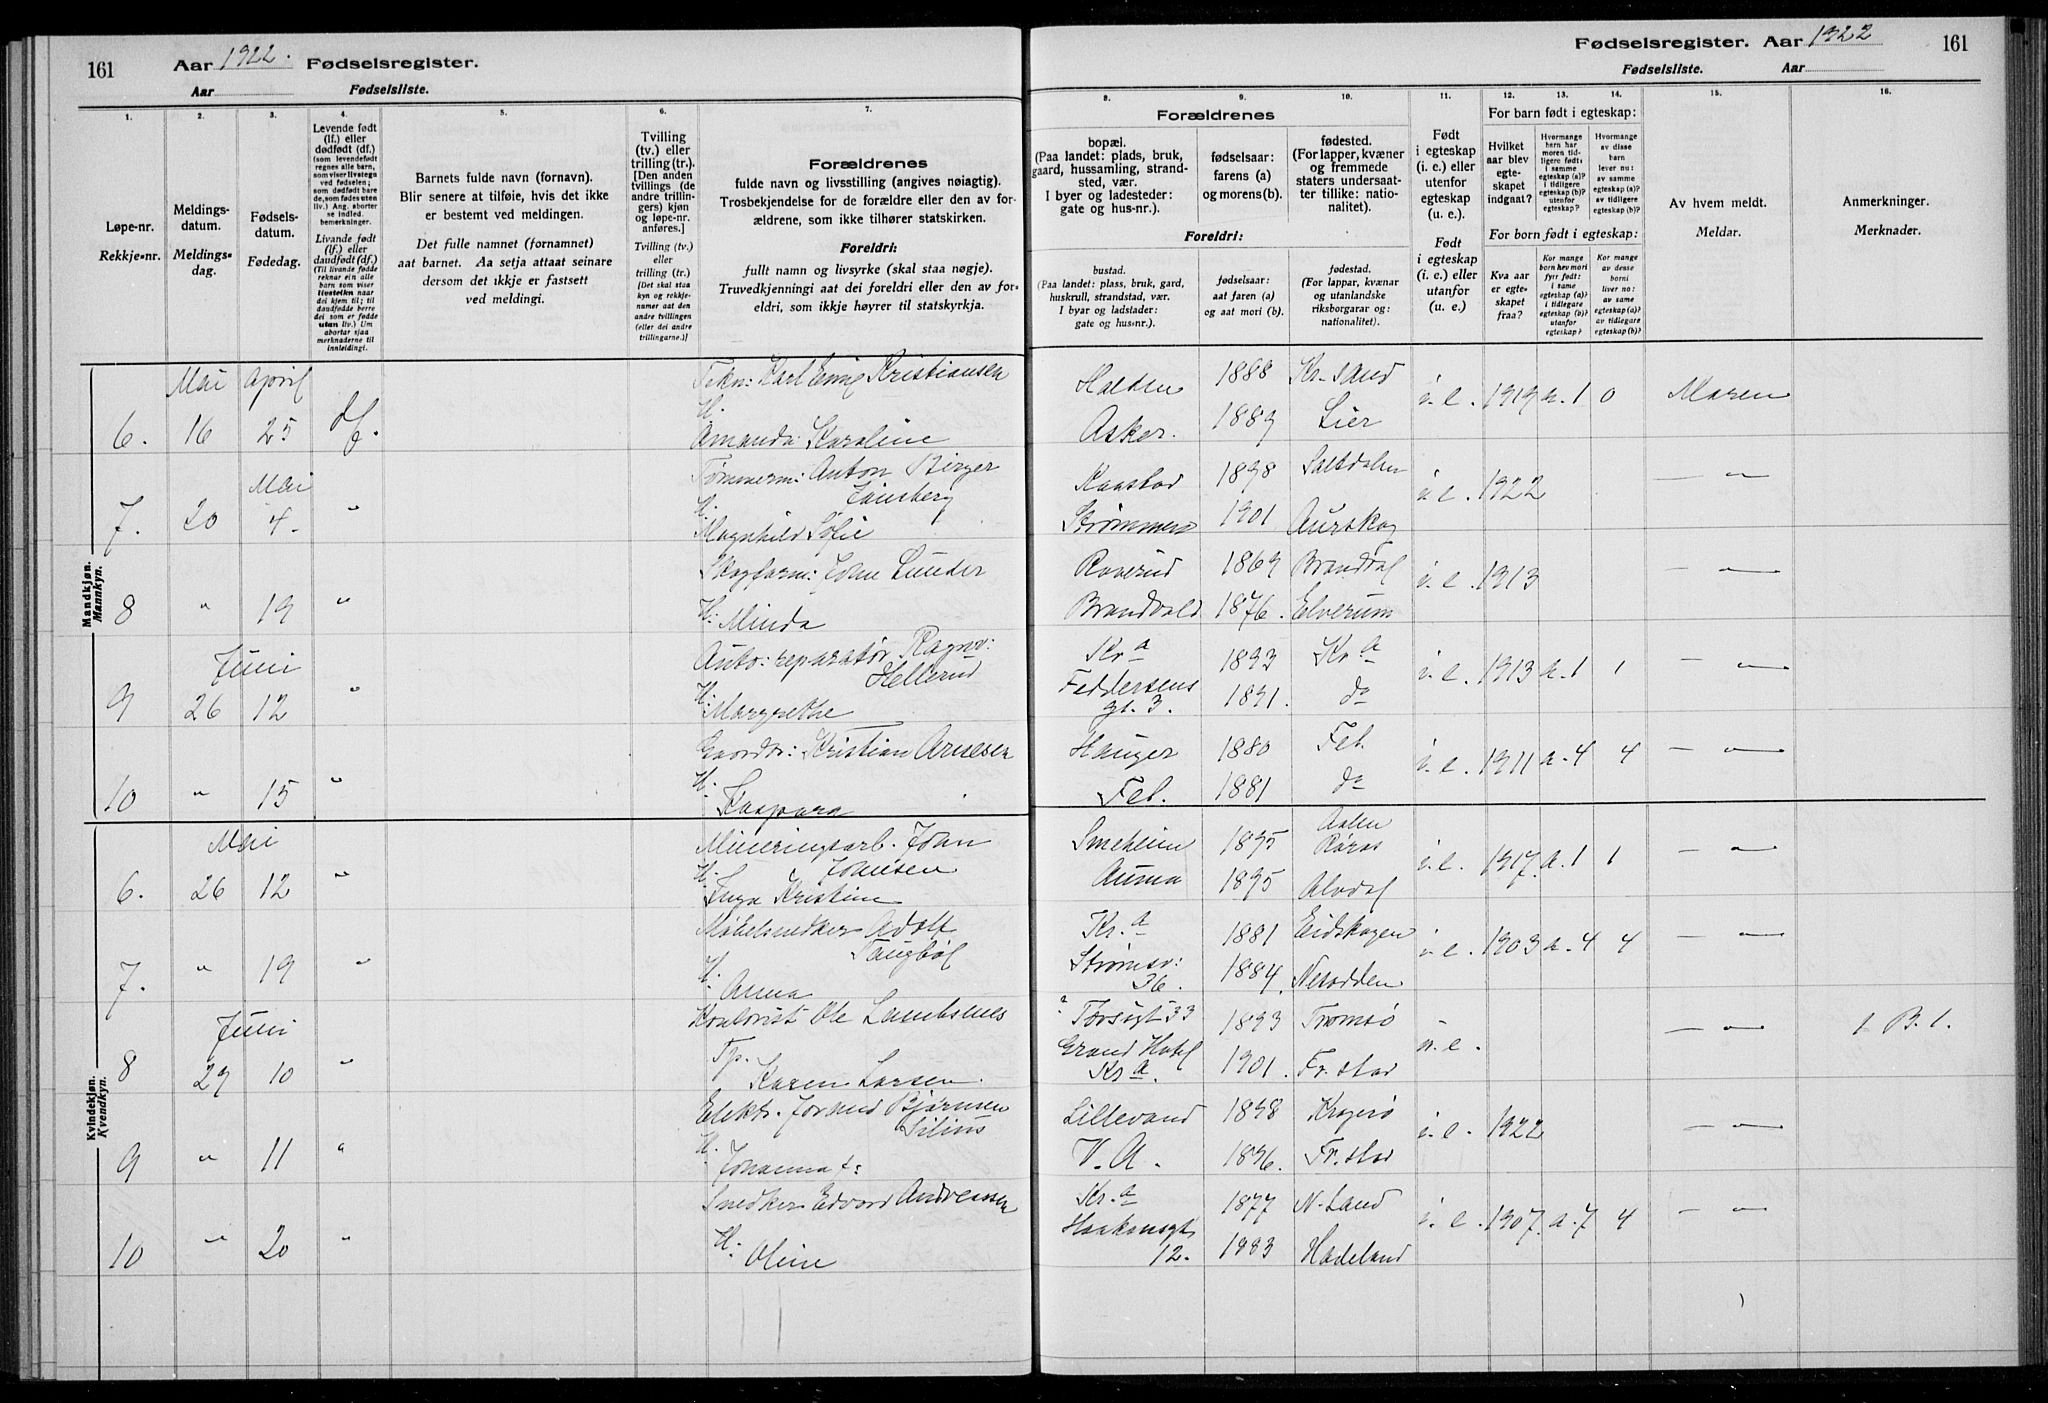 161
Aar 1922. Fødselsregister.
Aar Fødselsliste.
1.
2.
3.
4.
5.
6.
7.
Løpe-nr.
Rekkje-nr.
Meldings-
datum.
Meldings-
dag.
Fødsels-
datum.
Fødedag.
Levende født
(lf.) eller
dødfødt (df.)
(som levendefødt
regnes alle barn,
som viser livstegn
ved fødselen;
som dødfødt bare
de, som fødes uten
liv.) Ang. aborter
se indled.
bemerkninger.
Livande født
(lf.) eller
daudfødt (df.)
(Til livande fødde
reknar ein alle
barn som viser
livsteikn naar
dei kjem til; til
daudfødde berre
dei som er fødde
utan liv.) Um
abortar sjaa
merknaderne til
innleidingi.
Barnets fulde navn (fornavn).
Blir senere at tilføie, hvis det ikke
er bestemt ved meldingen.
Det fulle namnet (fornamnet)
aat barnet. Aa setja attaat seinare
dersom det ikkje er fastsett
ved meldingi.
Tvilling
(tv.) eller
trilling (tr.).
[Den anden
tvillings (de
andre trillin-
gers) kjøn
og løpe-nr.
anføres.]
Tvilling (tv.)
eller
trilling (tr.)
[Det skal staa
kyn og rekkje-
numer aat den
andre tvillingen
(eller dei andre
trillingarne.)]
Forældrenes
fulde navn og livsstilling (angives nøiagtig).
Trosbekjendelse for de forældre eller den av for-
ældrene, som ikke tilhører statskirken.
Foreldri:
fullt namn og livsyrke (skal staa nøgje).
Truvedkjenningi aat dei foreldri eller den av for-
eldri, som ikkje høyrer til statskyrkja.
Mandkjøn.
Mannkyn.
Mai April
6. 16 25 df.
Karl Kristiansen
H.
Amanda Karoline
Mai
7. 20 4. "
Tømmerm: Anton Birger
H.
Magnhild Sofie
8 " 19 "
John Lunder
H. Minda
Juni
9 26 12 "
Auto: reparatør Ragnv:
Hellerud
H. Margrethe
10 " 15 "
Gaardbr: Kristian Arnesen
H. Kaspara
Kvindekjøn.
Kvendkyn.
Mai
6. 26 12 "
Mineringsarb. John
Johnsen
H. Inga Kristine
7. " 19 "
Møbelsnedker Adolf
Taugbøl
H. Anna
Juni
8 29 10 "
Kontorist Ole
Tp. Karen Larsen.
9 " 11 "
Elektr. Bjørnsen
H. Johanna
10 " 20 "
Snedker Edvard Andreassen
H. Oline
Fødselsregister. Aar 1922 161
Fødselsliste. Aar
8.
9.
10.
11.
12.
13.
14.
15.
16.
Forældrenes
bopæl.
(Paa landet: plads, bruk,
gaard, hussamling, strand-
sted, vær.
I byer og ladesteder:
gate og hus-nr.).
fødselsaar:
farens (a)
og morens (b).
fødested.
(For lapper, kvæner
og fremmede
staters undersaat-
ter tillike: natio-
nalitet).
Foreldri:
bustad.
(Paa landet: plass, bruk, gard,
huskrull, strandstad, vær.
I byar og ladstader:
gate og hus-nr.).
fødselsaar:
aat faren (a)
og aat mori (b).
fødestad.
(For lappar, kvænar
og utanlandske
riksborgarar og:
nationalitet).
Født
i egteskap
(i. e.) eller
utenfor
egteskap
(u. e.).
Født
i egteskap
(i. e.) eller
utanfor
(u. e.)
For barn født i egteskap:
Hvilket
aar blev
egte-
skapet
indgaat?
Hvormange
barn har
moren tid-
ligere født:
i samme
egteskap (a)?
i tidligere
egteskap (b)?
utenfor
egteskap?
Hvormange
av disse
barn
lever nu:
av samme
egteskap (a)?
av tidligere
egteskap (b)?
For born født i egteskap:
Kva aar
er egte-
skapet
fraa?
Kor mange
born hev mori
fyrr født:
i same
egteskap (a)?
i tidlegare
egteskap (b)?
utanfor
egteskap?
Kor mange
av desse
borni
liver no:
av same
egteskap (a)?
av tidlegare
egteskap (b)?
Av hvem meldt.
Meldar.
Anmerkninger.
Merknader.
Halden 1888 Kr.sand
i. e. 1919 a. 1 0 Moren
Asker. 1889 Lier
1898 Saltdalen
i. e. 1922 — " —
Strømmen 1901 Aurskog
Roverud 1869 Branddal
i. e. 1913 — " —
Brandvold 1876. Elverum
Kr.a 1893 Kr.a
i. e. 1913 a. 1 1 — " —
Feddersens
gt. 3. 1891. do
Hauger 1880 Fet.
i. e. 1911 a. 4 4 — " —
Fet. 1881 do
1895 Aalen
Røros
i. e. 1917. a. 1 1 — " —
Auma 1895 Alvdal
Kr.a 1881 Eidskogen
i. e. 1903 a. 4 4 — " —
Strømsv:
36. 1884. Nesodden
33 1893 Tromsø
u. e. — " — 1 B. 1.
Grand Hotel
Kr.a. 1901. Fr.stad
Lillevand 1898 Kragerø
i. e. 1922 — " —
V. A. 1896. Fr.stad
Kr.a 1877 N. Land
i. e. 1907. a. 7 4 — " —
Haakonsgt
12. 1883 Hadeland